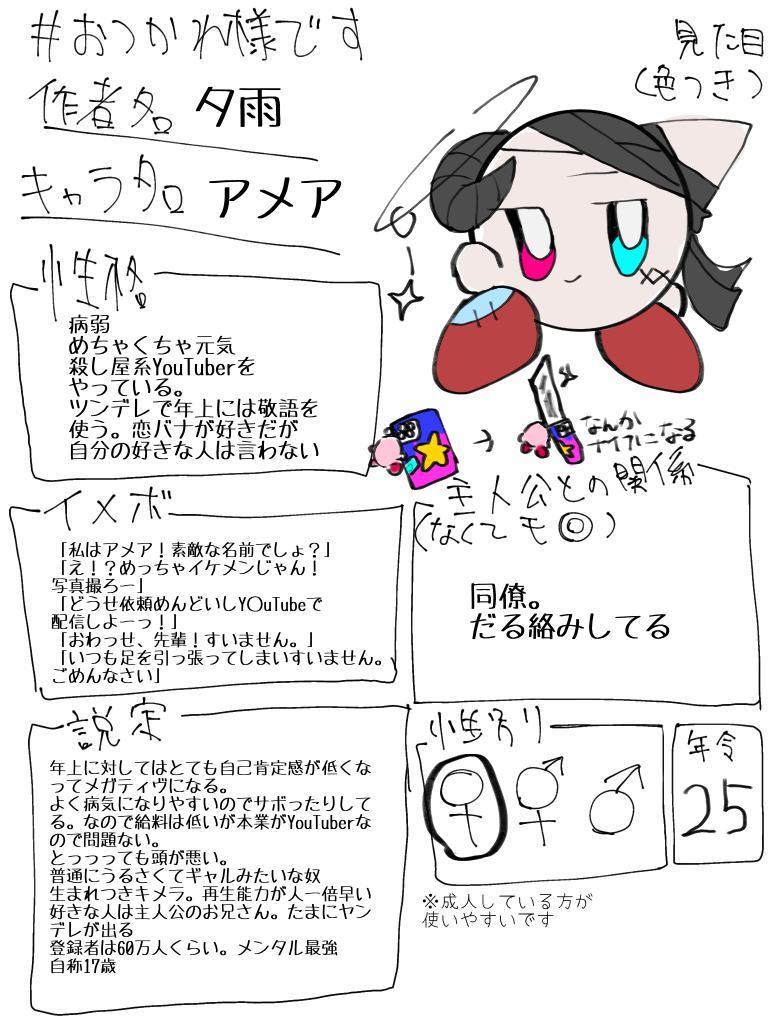 #おつかれ様です
見た目
(色つき)
作者名 夕雨
キャラ名 アメア
性格
病弱
めちゃくちゃ元気
殺し屋系YouTuberを
やっている。
ツンデレで年上には敬語を
使う。恋バナが好きだが
自分の好きな人は言わない
→
なんか
ナイフになる
イメボ
「私はアメア！素敵な名前でしょ？」
「え！？めっちゃイケメンじゃん！
写真撮ろー」
「どうせ依頼めんどいしY〇uTubeで
配信しよーっ！」
「おわっせ、先輩！すいません。」
「いつも足を引っ張ってしまいすいません。
ごめんなさい」
主人公との関係
(なくてモ◎)
同僚。
だる絡みしてる
説定
年上に対してはとても自己肯定感が低くな
ってメガティヴになる。
よく病気になりやすいのでサボったりして
る。なので給料は低いが本業がYouTuberな
ので問題ない。
とっっっても頭が悪い。
普通にうるさくてギャルみたいな奴
生まれつきキメラ。再生能力が人一倍早い
好きな人は主人公のお兄さん。たまにヤン
デレが出る
登録者は60万人くらい。メンタル最強
自称17歳
性別
♀
♂
年令
25
※成人している方が
使いやすいです